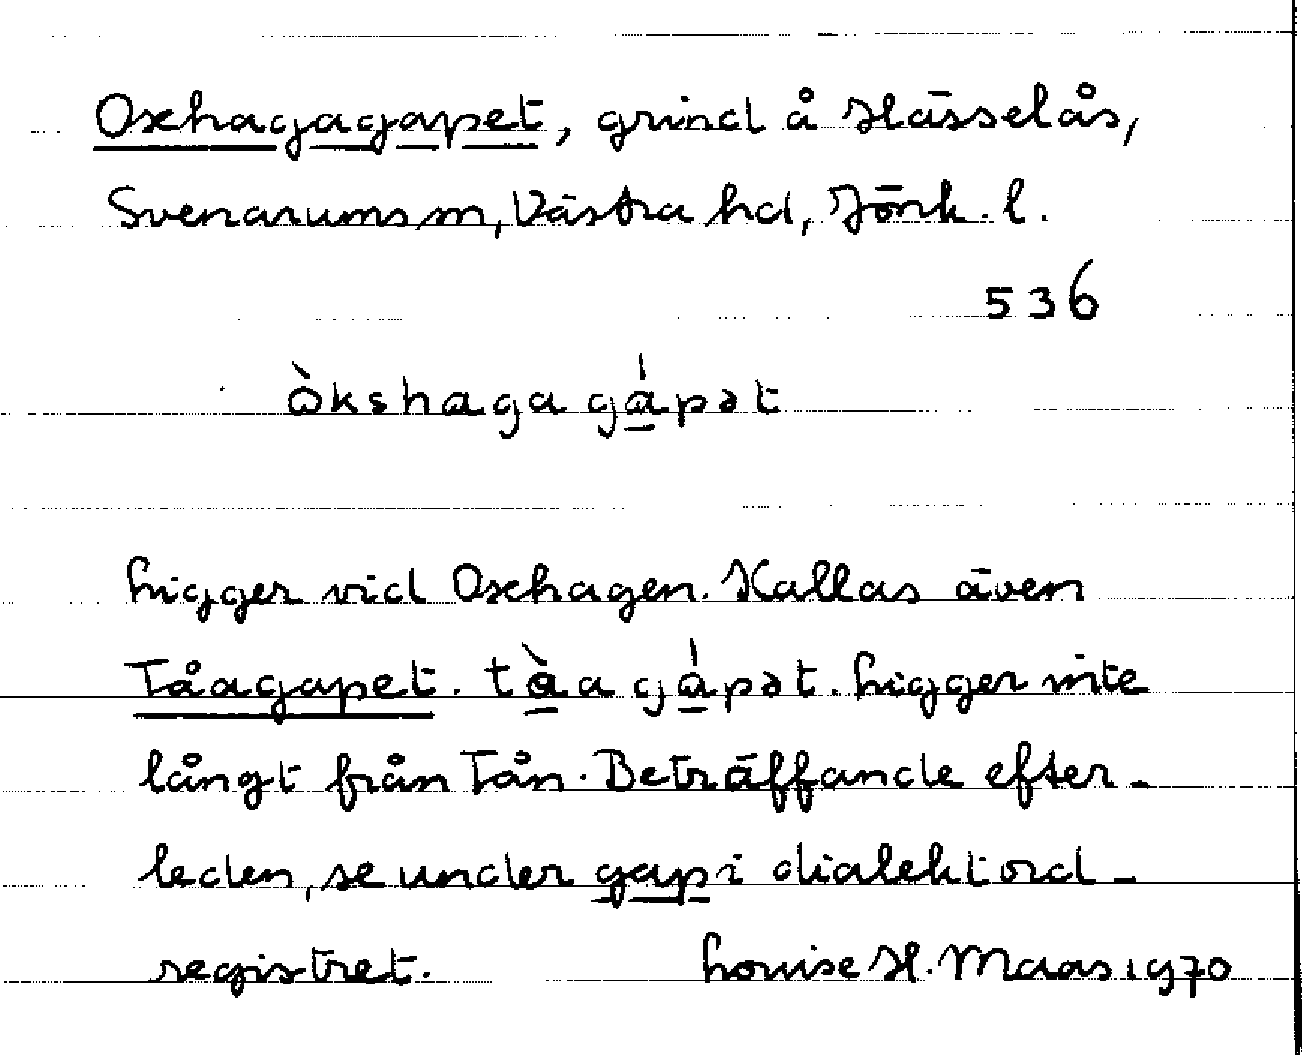 Oxhagagapet, grind å Hässelås,
Svenarums sn, Västra hd, Jönk. l.
536
òkshaga gápət
Ligger vid Oxhagen. Kallas även
Tåagapet. tàa gápət. Ligger inte
långt från Tån. Beträffande efter-
leden, se under gap i dialektord-
registret. Louise H. Maas 1970